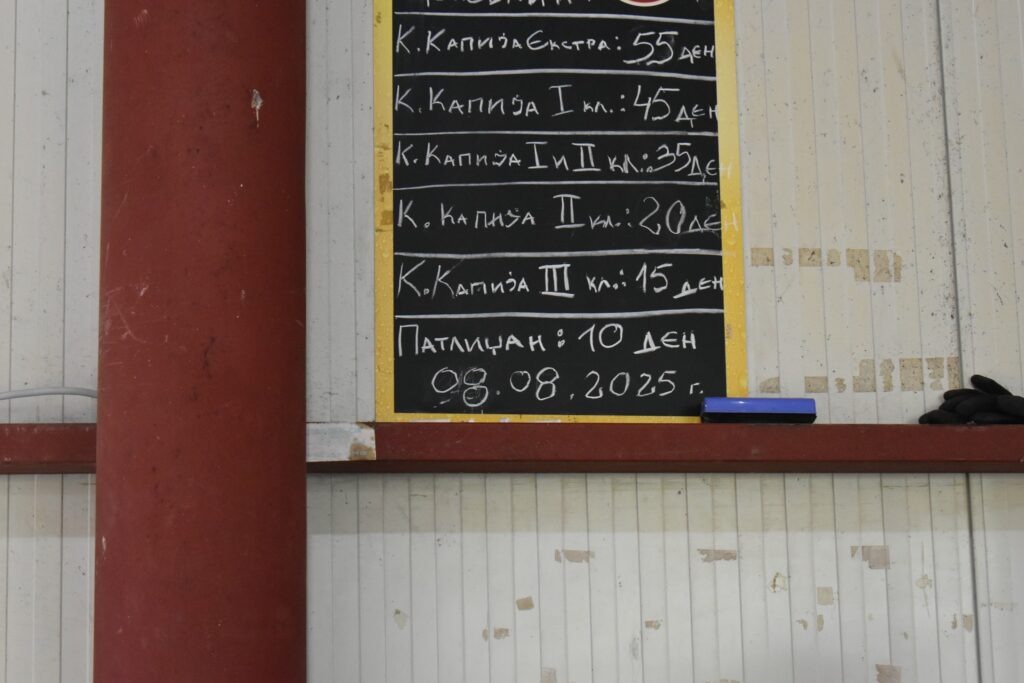 К. Капија Екстра: 55 ден
К. Капија I кл.: 45 ден
К. Капија I и II кл.: 35 ден
К. Капија II кл.: 20 ден
К. Капија III кл.: 15 ден
Патлиџан: 10 ден
08.08.2025 г.